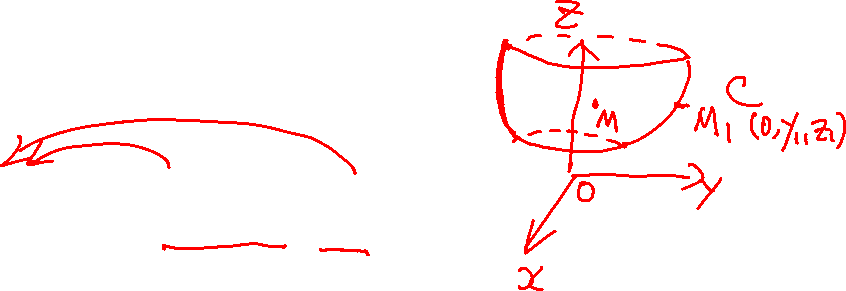 Z
C
M
M₁ (0, y₁, z₁)
O
y
x